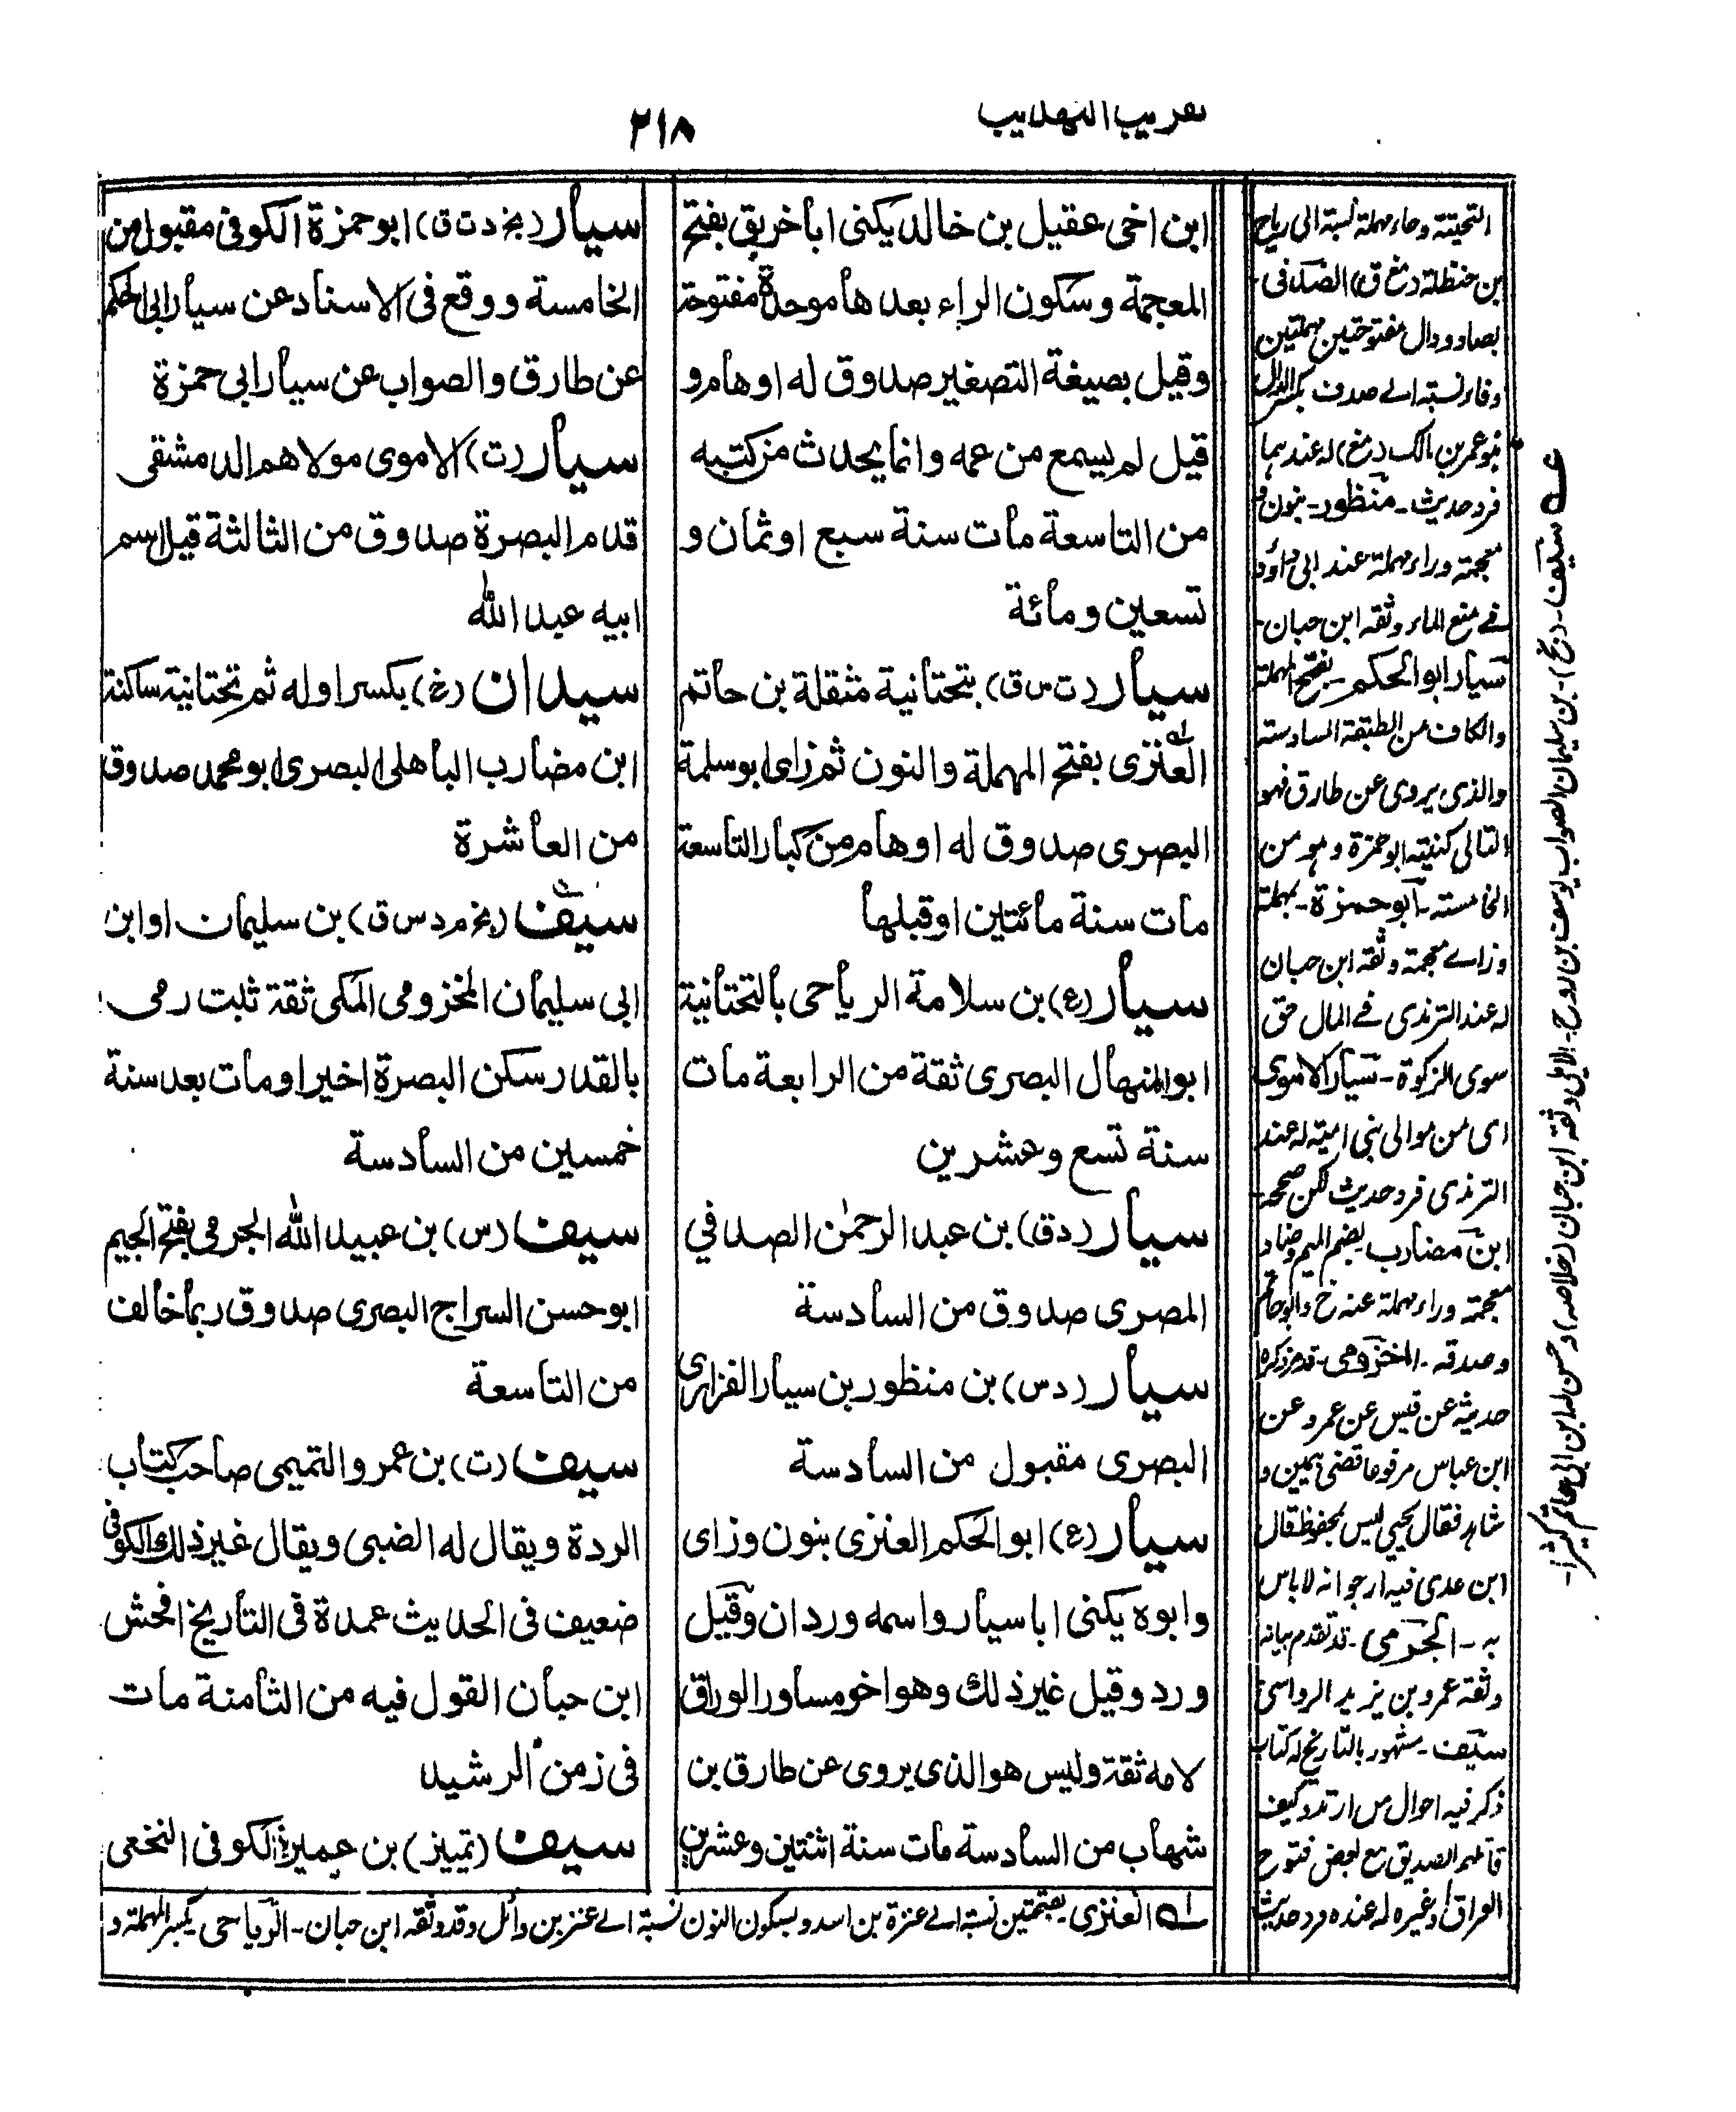 تقريب التهذيب
٢١٨
ابن اخى عقيل بن خالد يكنى ابا خريق بفتح
المعجمة وسكون الراء بعدها موحدة مفتوحة
وقيل بصيغة التصغير صدوق له اوهام و
قيل لم يسمع من عمه وانما يحدث من كتبه
من التاسعة مات سنة سبع اوثمان و
تسعين ومائة
سيار (ت س ق) بتحتانية مثقلة بن حاتم
العنزى بفتح المهملة والنون ثم زاى ابوسلمة
البصرى صدوق له اوهام من كبار التاسعة
مات سنة مائتين اوقبلها
سيار (ع) بن سلامة الرياحى بالتحتانية
ابوالمنهال البصرى ثقة من الرابعة مات
سنة تسع وعشرين
سيار (دق) بن عبد الرحمٰن الصدفي
المصرى صدوق من السادسة
سيار (دس) بن منظور بن سيار الفزارى
البصرى مقبول من السادسة
سيار (ع) ابوالحكم العنزى بنون وزاى
وابوه يكنى اباسيار واسمه وردان وقيل
ورد وقيل غير ذلك وهو اخو مساور الوراق
لامه ثقة وليس هو الذى يروى عن طارق بن
شهاب من السادسة مات سنة اثنتين وعشرين
سيار (بخ دت ق) ابوحمزة الكوفى مقبول من
الخامسة ووقع فى الاسناد عن سيار ابى الحكم
عن طارق والصواب عن سيار ابى حمزة
سيار (ت) الاموى مولاهم الدمشقى
قدم البصرة صدوق من الثالثة قيل اسم
ابيه عبد الله
سيدان (خ) بكسر اوله ثم تحتانية ساكنة
ابن مضارب الباهلى البصرى ابومحمد صدوق
من العاشرة
سيف (خ م د س ق) بن سليمان اوابن
ابى سليمان المخزومى المكى ثقة ثبت رمى
بالقدر سكن البصرة اخيرا ومات بعد سنة
خمسين من السادسة
سيف (س) بن عبيد الله الجرمى بفتح الجيم
ابوحسن السراج البصرى صدوق ربما خالف
من التاسعة
سيف (ت) بن عمرو التميمى صاحب كتاب
الردة ويقال له الضبى ويقال غير ذلك الكوفى
ضعيف فى الحديث عمدة فى التاريخ افحش
ابن حبان القول فيه من الثامنة مات
فى زمن الرشيد
سيف (تمييز) بن عميرة الكوفى النخعى
التحيتة وحاء مهملة نسبة الى رياح
بن حنظلة (مغ ق) الصدفى
بصاد ودال مفتوحتين مهملتين
وفاء نسبة الے صدف بكسر الدال
بنو عمر بن مالك (مغ) له عندهما
فرد حديث - منظور - بنون و
معجمة وراء مهملة عند ابى داؤد
فے منع الماء وثقه ابن حبان -
سيار ابوالحكم - بفتح المهملة
والكاف من الطبقة السادسة
والذى يروى عن طارق فهو
التالى كنيته ابوحمزة وهو من
الخامسة - ابوحمزة - بمهملة
وزاے معجمة وثقه ابن حبان
له عند الترمذى فے المال حق
سوى الزكوة - سيار الاموى
اى من موالى بنى امية له عند
الترمذى فرد حديث لكن صححه -
ابن مضارب بضم الميم وضاد
معجمة وراء مهملة عنه خ وابوحاتم
وصدقه - المخزومى - قد مر ذكره
حديثه عن قيس عن عمرو عن
ابن عباس مرفوعا قضى بيمين و
شاهد فقال يحيى ليس بمحفوظ قال
ابن عدى فيه ارجوانه لاباس
به - الجرمى - قد تقدم بيانه
وثقه عمرو بن يزيد الرواسى
سيف - مشهور بالتاريخ له كتاب
ذكر فيه احوال من ارتد وكيف
قاتلهم الصديق مع بعض فتوح
العراق وغيره له عنده فرد حديث
ے سيف - (بخ) - بن سليمان الصواب يوسف بن روح - الايلى وثقه ابن حبان (خلاصه) و حسن له ابن ابى حاتم كثيرا -
لے العنزى بفتحتين نسبة الے عنزة بن اسد وبسكون النون نسبة الے عنز بن وائل وقد وثقه ابن حبان - الرياحى بكسر المهملة و